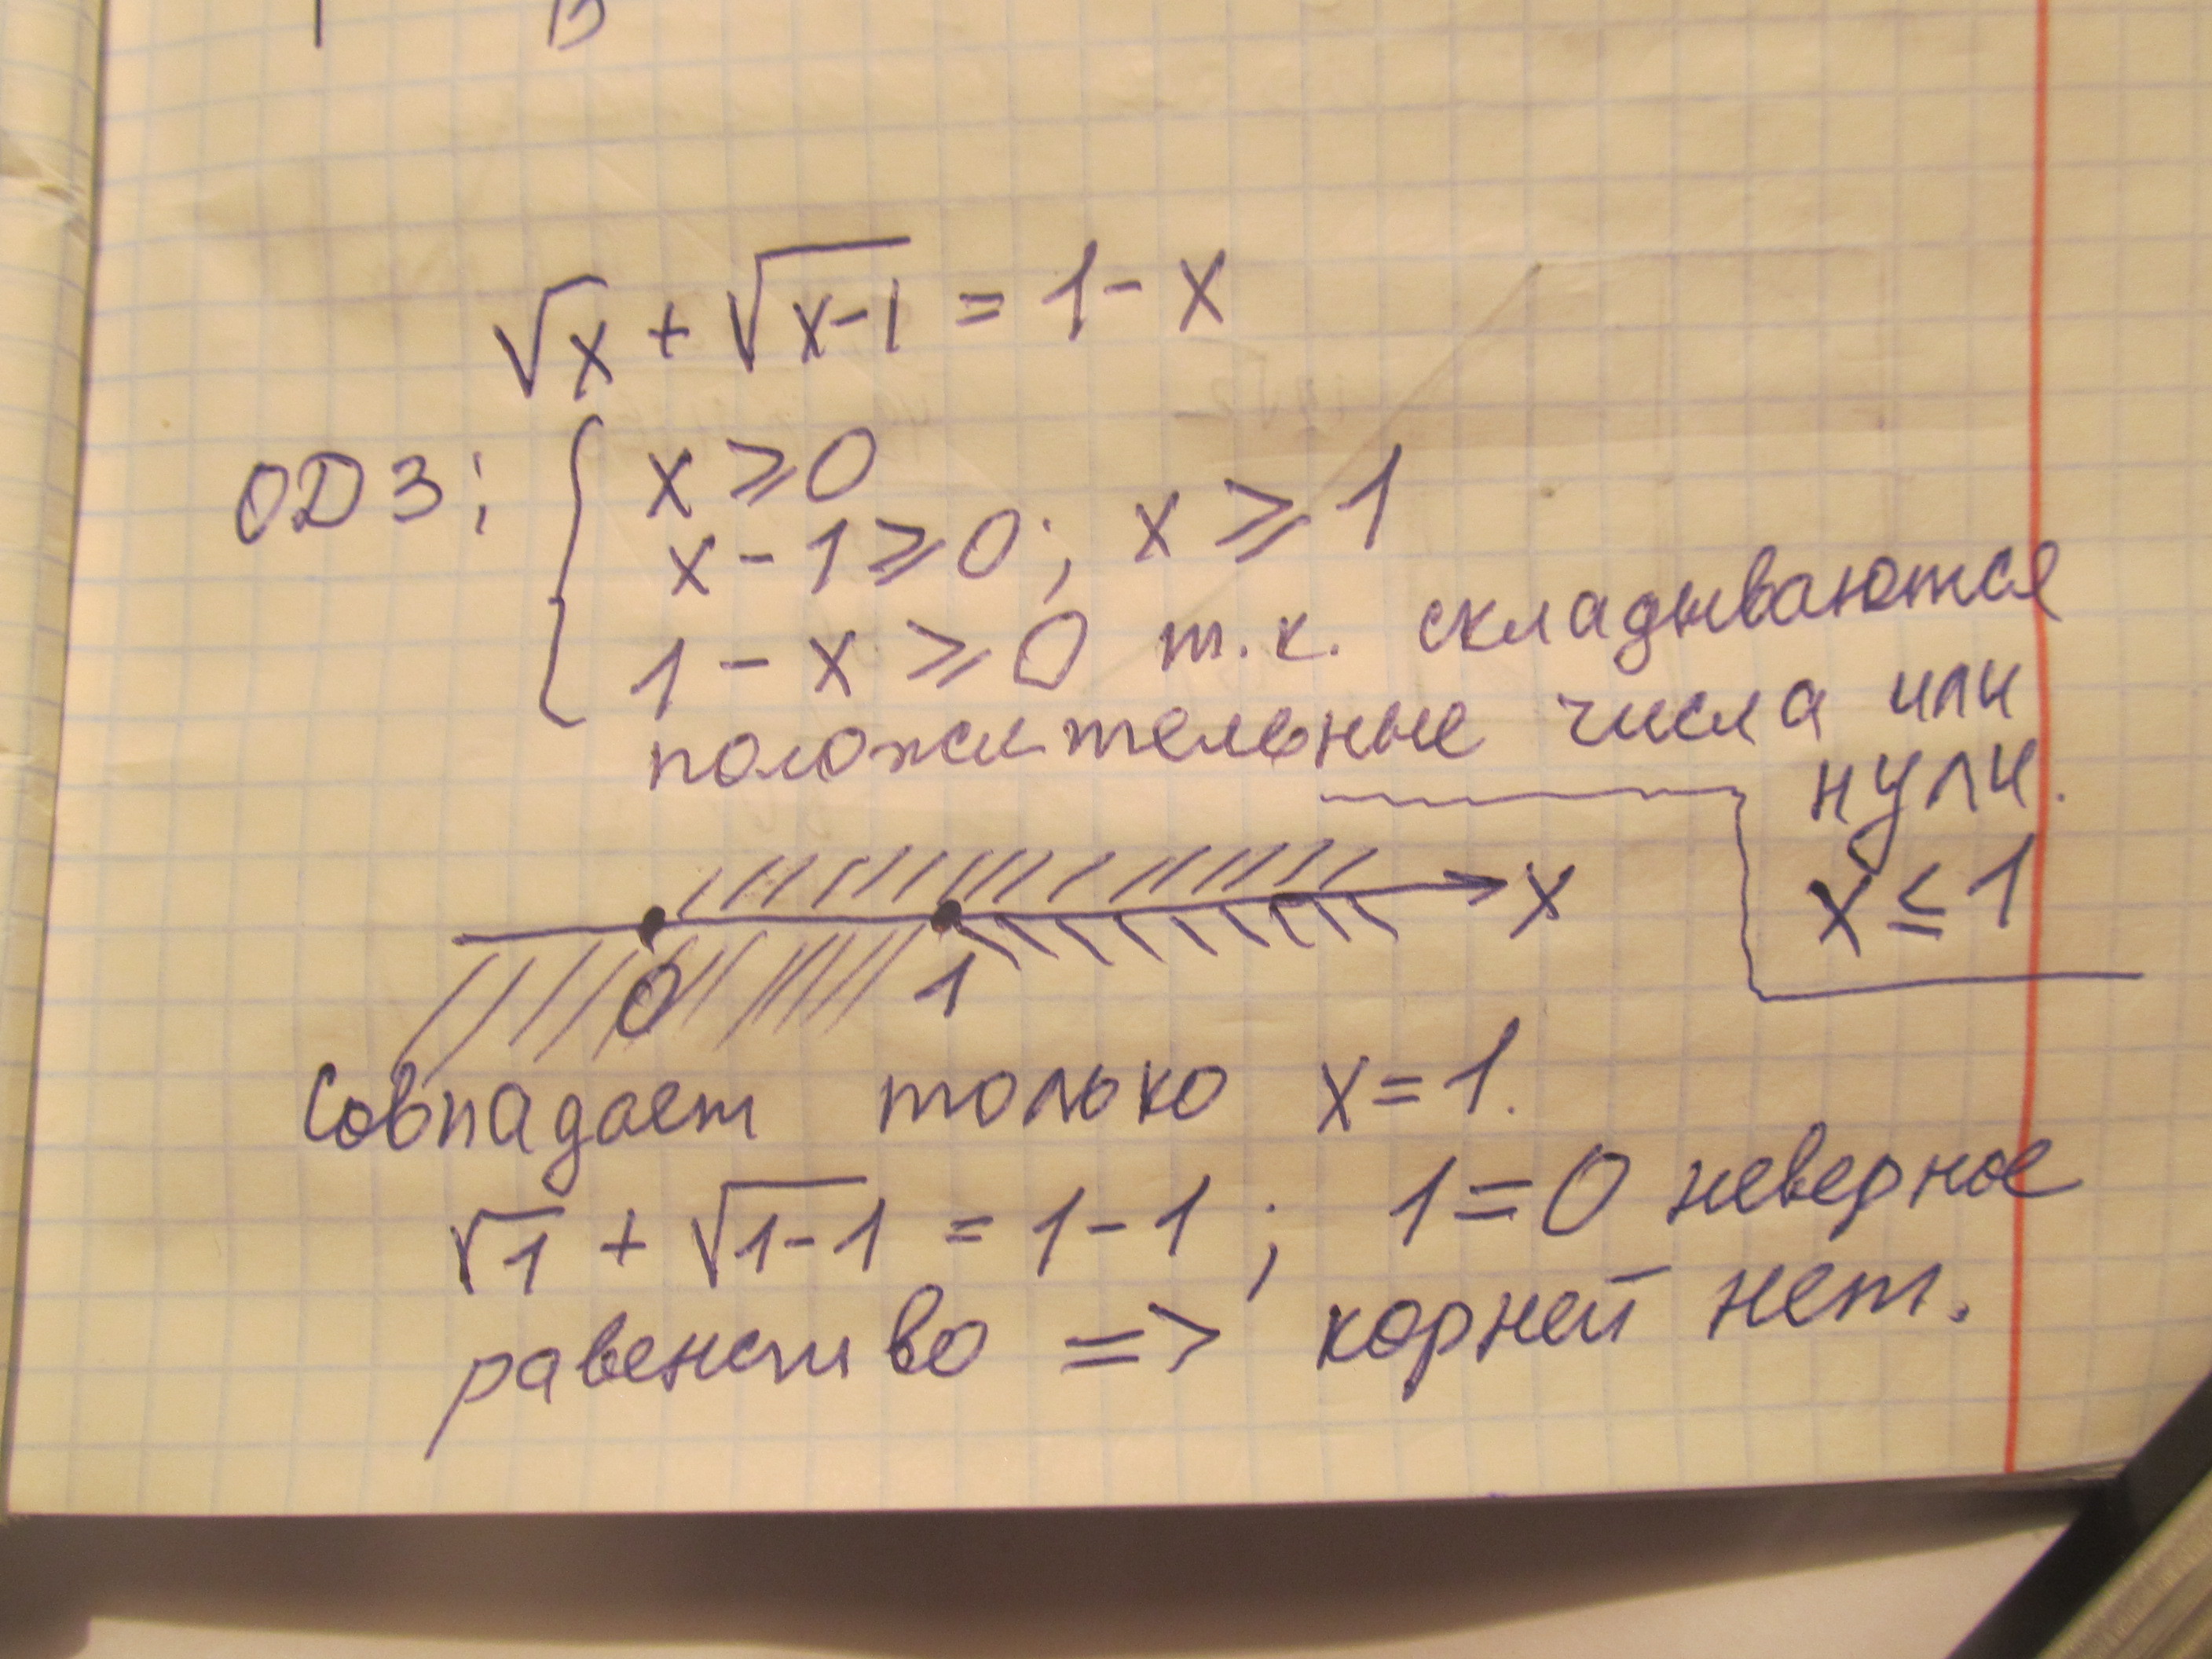 √x + √x-1 = 1 - x
ОДЗ: { x ≥ 0
x - 1 ≥ 0; x ≥ 1
1 - x ≥ 0 т.к. складываются
положительные числа или
нули.
x ≤ 1
x
0 1
Совпадает только x = 1.
√1 + √1-1 = 1 - 1; 1 = 0 неверное
равенство => корней нет.